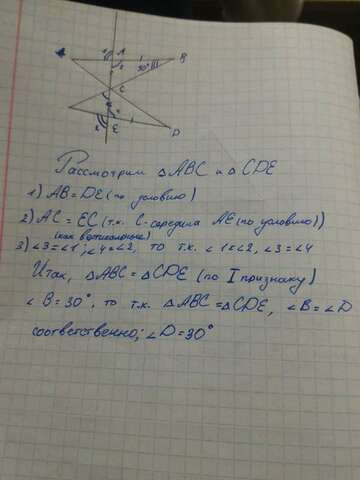 1 A B
2 30°
C
4 3
2 E D
Рассмотрим △ABC и △CDE
1) AB = DE (по условию)
2) AC = EC (т.к. C-середина AE (по условию))
(как вертикальные)
3) ∠3=∠1; ∠4=∠2, то т.к. ∠1=∠2, ∠3=∠4
Итак, △ABC = △CDE (по I признаку)
∠B = 30°, то т.к. △ABC = △CDE, ∠B = ∠D
соответственно; ∠D = 30°